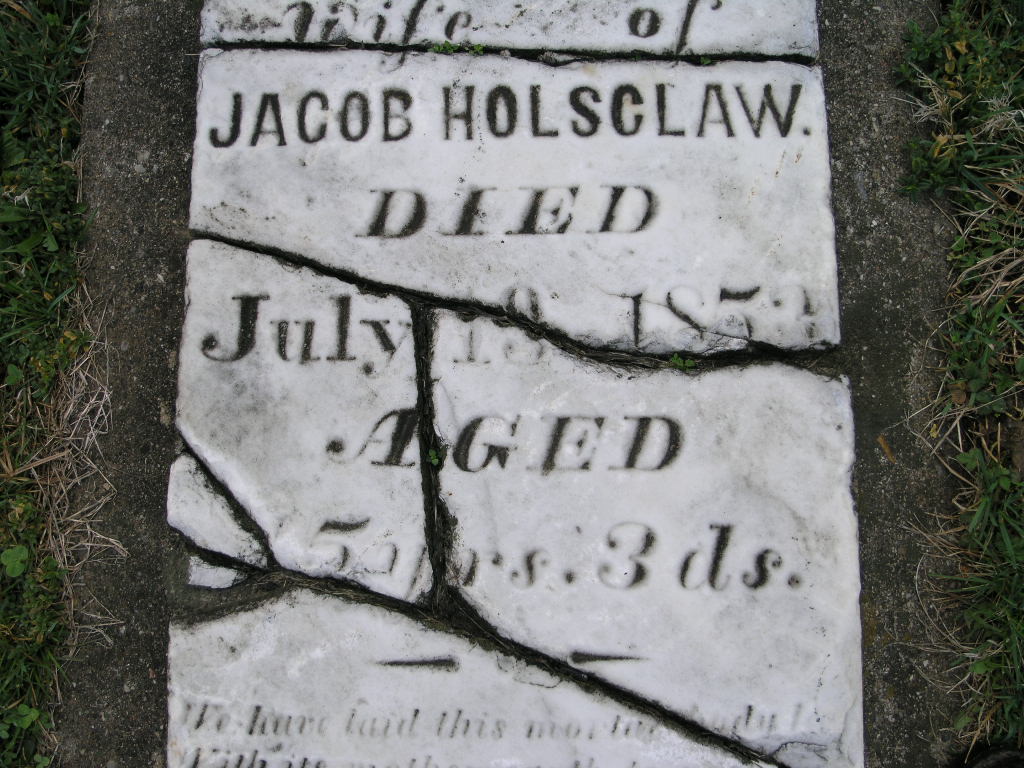 wife of
JACOB HOLSCLAW.
DIED
July 19, 1873
AGED
5 yrs. 3 ds.
We have laid this mortal body
With its mother